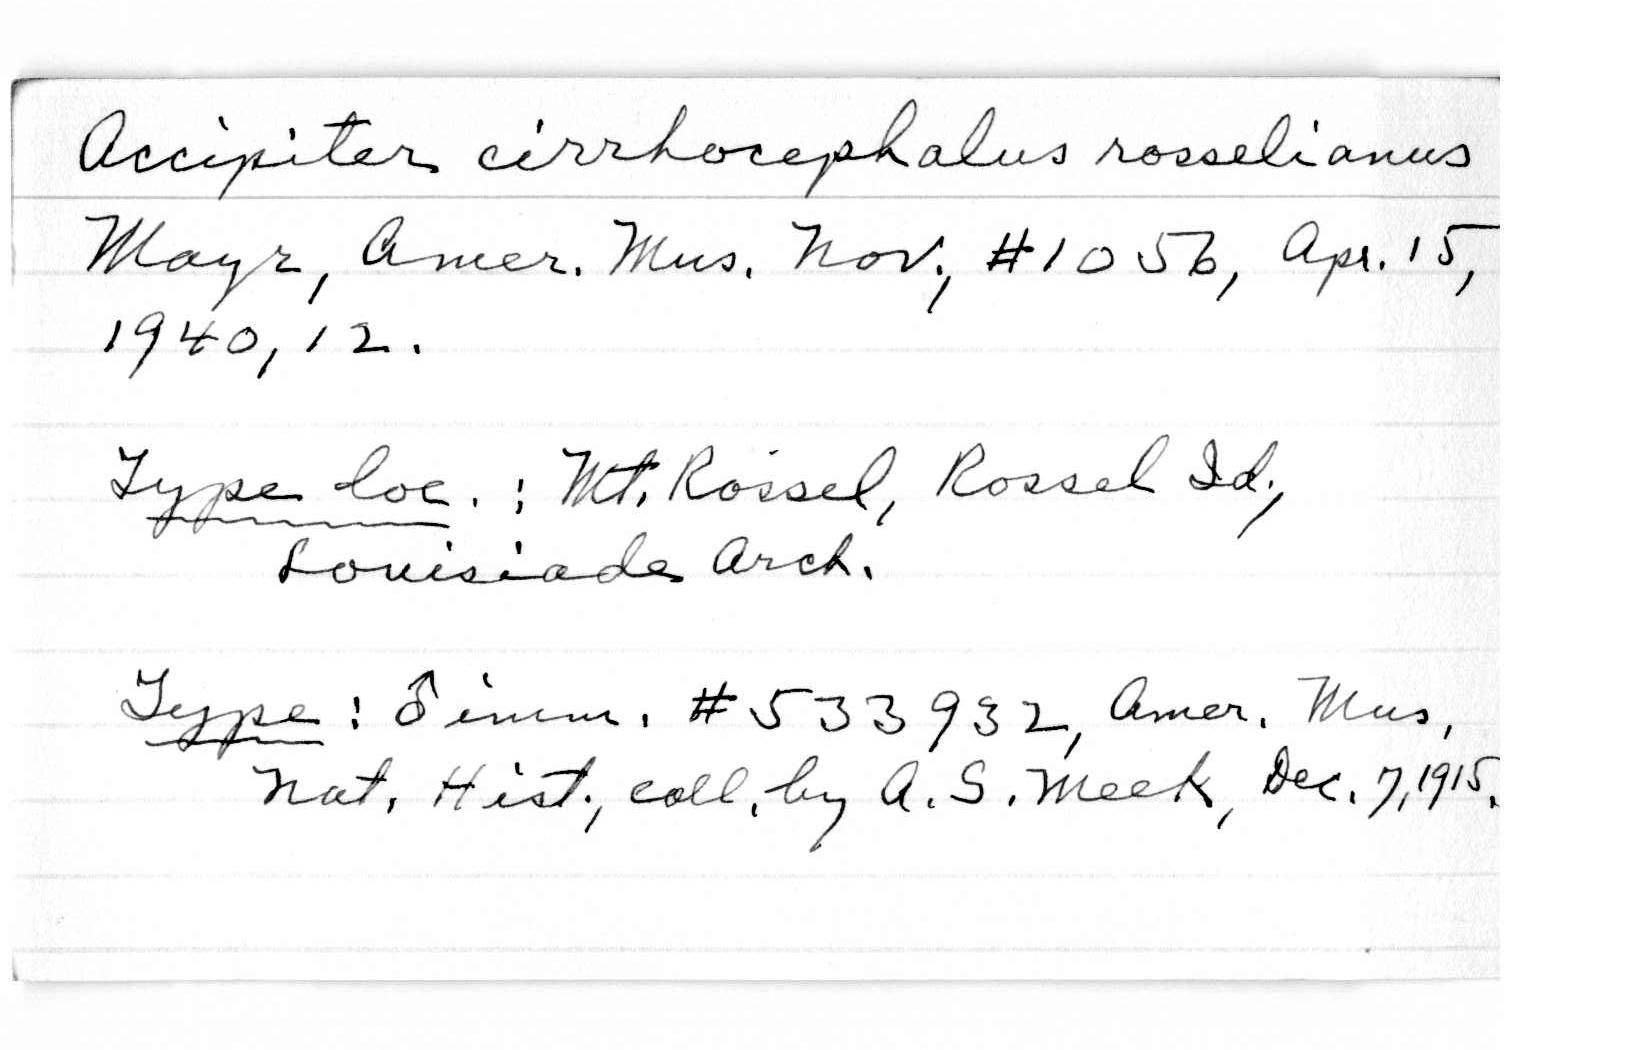 Accipiter cirrhocephalus rosselianus
Mayr, Amer. Mus. Nov., #1056, Apr. 15,
1940, 12.
Type loc. : Mt. Rossel, Rossel Id.,
Louisiade Arch.
Type : ♂ imm. #533932, Amer. Mus.
Nat. Hist., coll. by A. S. Meek, Dec. 7, 1915.